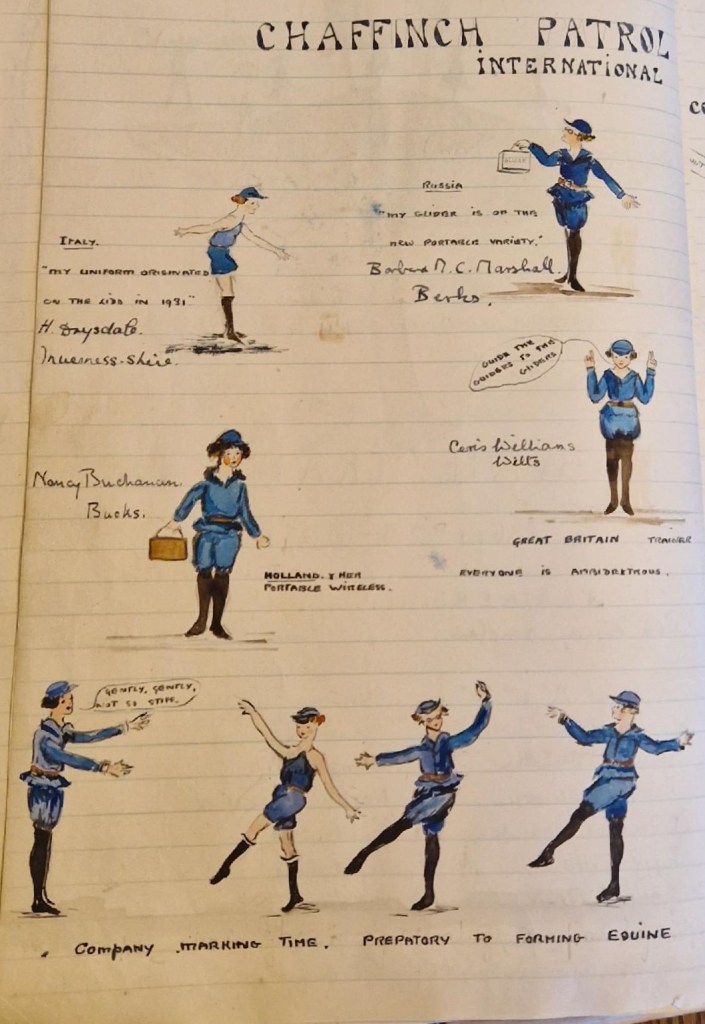 CHAFFINCH PATROL
INTERNATIONAL
RUSSIA
"MY GLIDER IS OF THE
NEW PORTABLE VARIETY."
Barbara M. C. Marshall.
Berks.
ITALY.
"MY UNIFORM ORIGINATED
ON THE LIDO IN 1931"
H. Drysdale.
Inverness-Shire.
GUIDE THE
GUIDERS TO THE
GLIDERS
Ceris Williams
Wilts
GREAT BRITAIN TRAINER
EVERYONE IS AMBIDEXTROUS.
Nancy Buchanan.
Bucks.
HOLLAND. & HER
PORTABLE WIRELESS.
GENTLY, GENTLY,
NOT SO STIFF.
COMPANY MARKING TIME. PREPATORY TO FORMING EQUINE